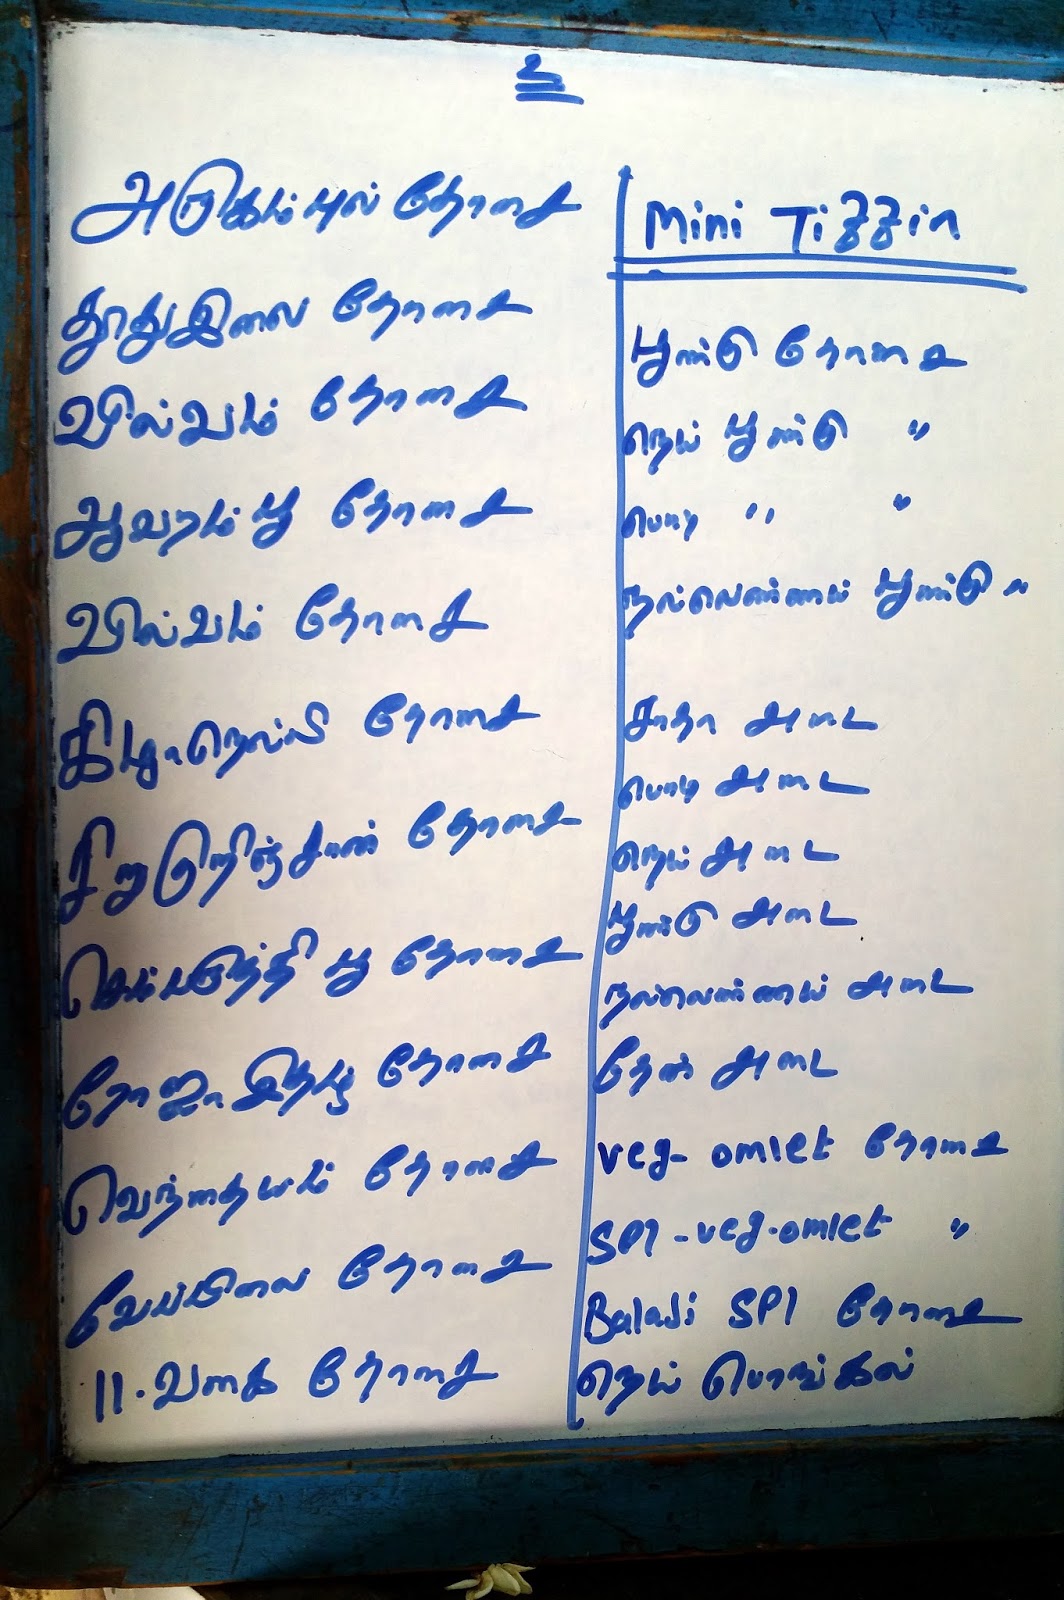 உ
அருகம்புல் தோசை
தூதுஇலை தோசை
வில்வம் தோசை
ஆவரம் பூ தோசை
வில்வம் தோசை
கிழாநெல்லி தோசை
சிறுகுறிஞ்சான் தோசை
செம்பருத்தி பூ தோசை
ரோஜா இதழ் தோசை
வெந்தையம் தோசை
வேப்பிலை தோசை
11. வகை தோசை
Mini Tiffin
பூண்டு தோசை
நெய் பூண்டு "
பொடி " "
நல்லெண்ணைய் பூண்டு "
சாதா அடை
பொடி அடை
நெய் அடை
பூண்டு அடை
நல்லெண்ணைய் அடை
தேன் அடை
veg- omlet தோசை
SPl - veg-omlet "
Balaji SPl தோசை
நெய் பொங்கல்